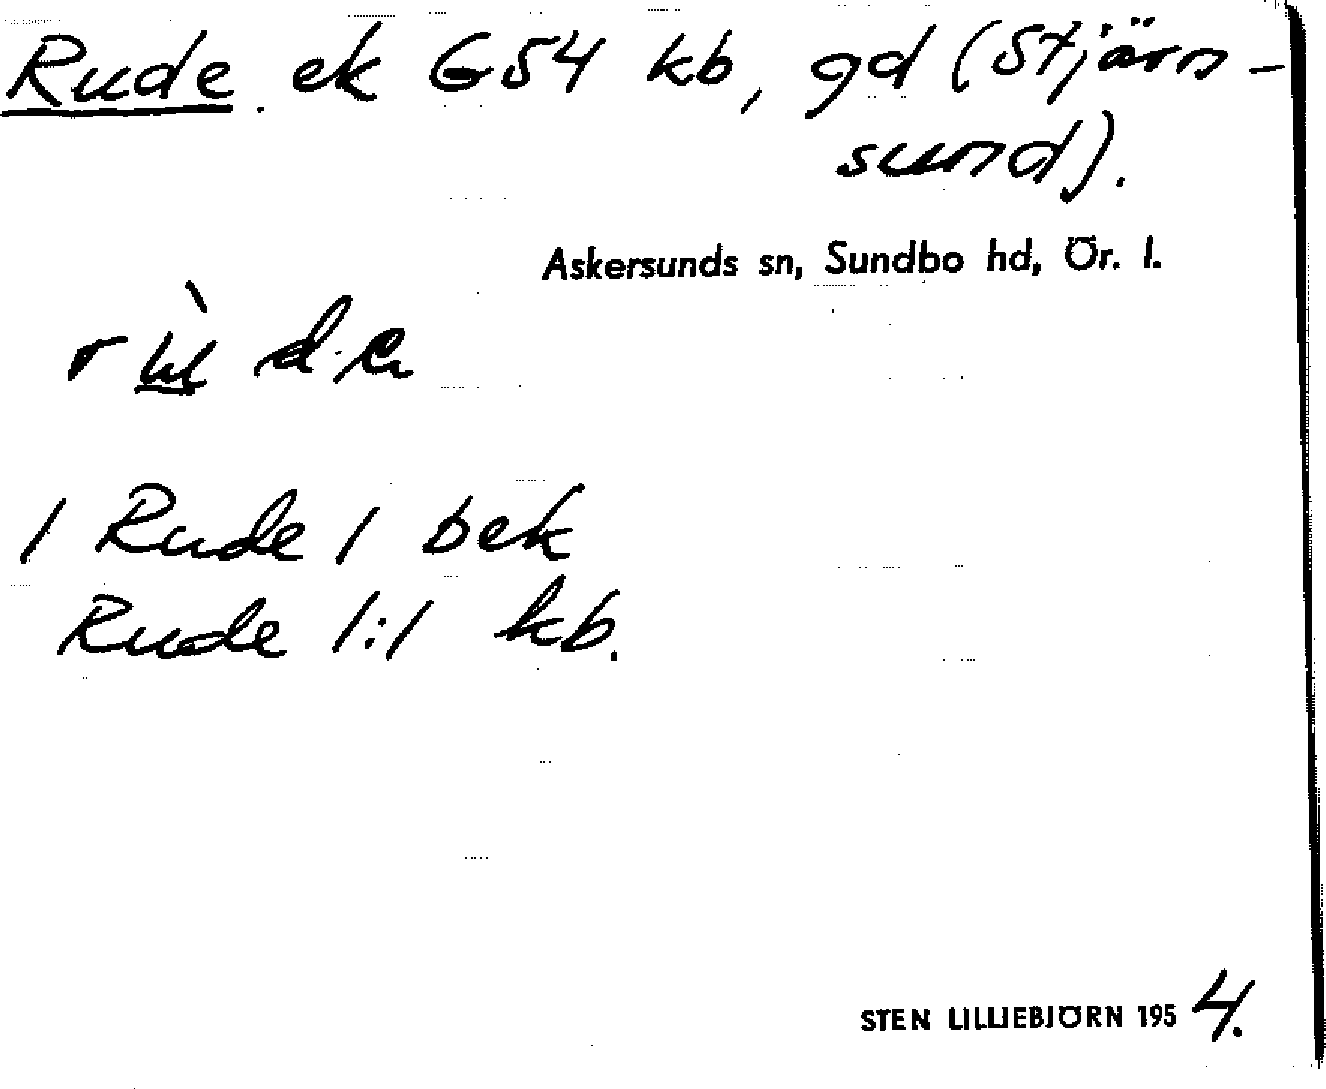 Rude. ek G54 kb, gd (Stjärn-
sund).
Askersunds sn, Sundbo hd, Ör. l.
1 Rude 1 bek
Rude 1:1 kb.
STEN LILLIEBJÖRN 1954.